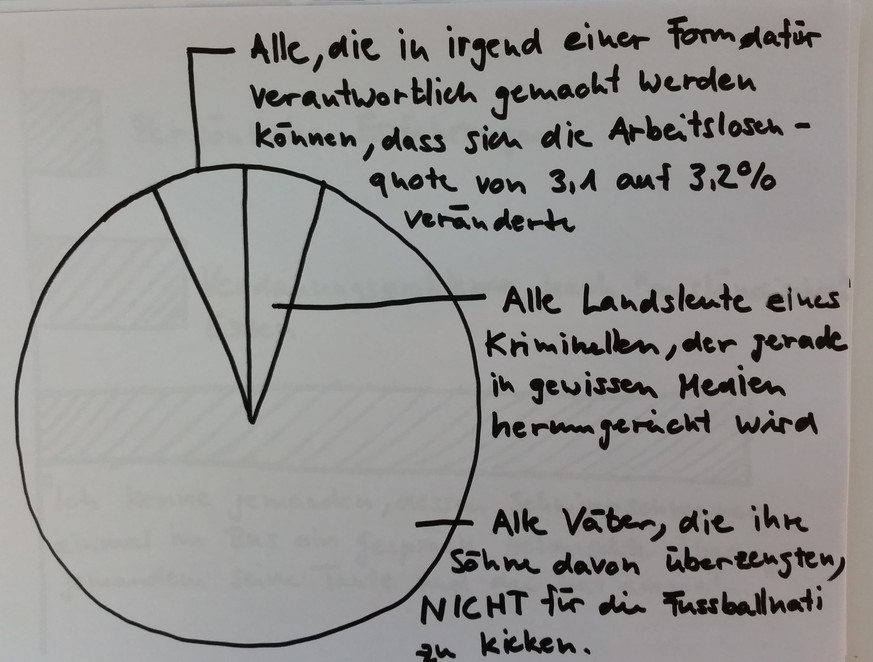 Alle, die in irgend einer Form dafür
verantwortlich gemacht werden
können, dass sich die Arbeitslosen-
quote von 3,1 auf 3,2%
veränderte
Alle Landsleute eines
Kriminellen, der gerade
in gewissen Medien
herumgereicht wird
Alle Väter, die ihre
Söhne davon überzeugten,
NICHT für die Fussballnati
zu kicken.